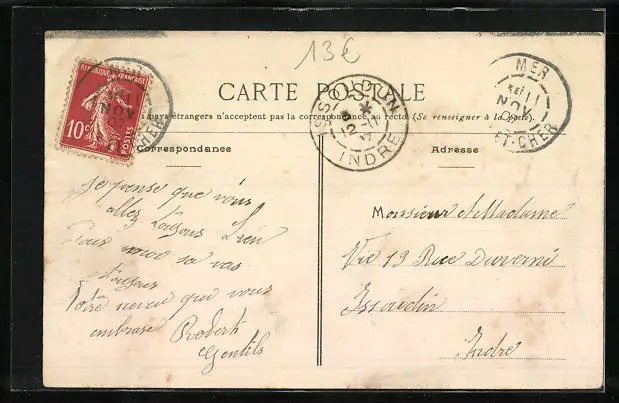 13€
CARTE POSTALE
pays étrangers n'acceptent pas la correspondance au recto (Se renseigner à la Poste).
REPUBLIQUE FRANÇAISE
10c
POSTES
MER
11
NOV
ET-CHER
ISSOUDUN
12-11
INDRE
Correspondance
Adresse
Je pense que vous
allez toujours bien
Pour moi sa vas
toujours
Votre neveu que vous
embrase Robert
Gentils
Monsieur et Madame
Vic 19 Rue Duverné
Issoudin
Indre